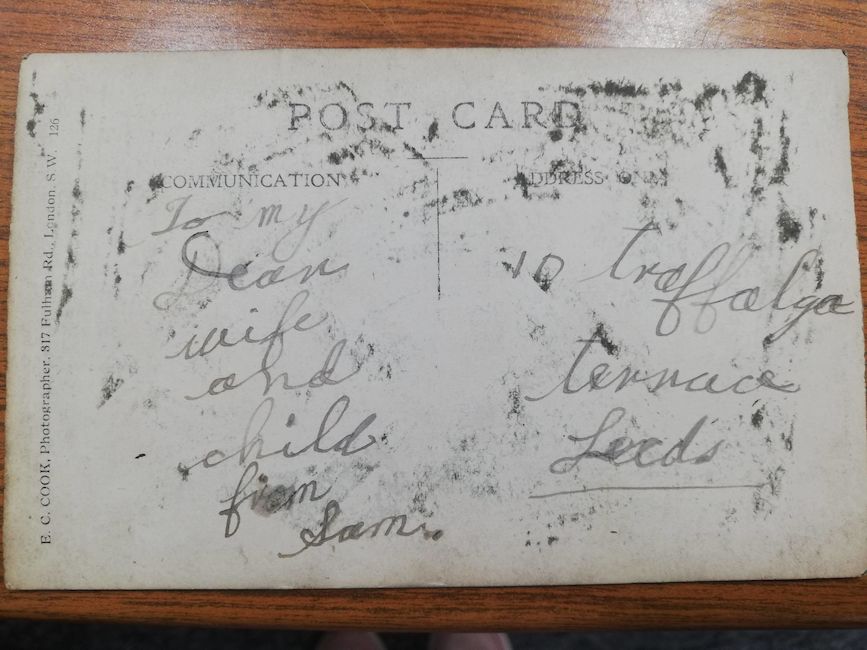 POST CARD
COMMUNICATION
To my
Dear
wife
and
child
from
Sam.
ADDRESS ONLY
10 traffalga
terrace
Leeds
E. C. COOK, Photographer, 817 Fulham Rd., London, S. W. 126